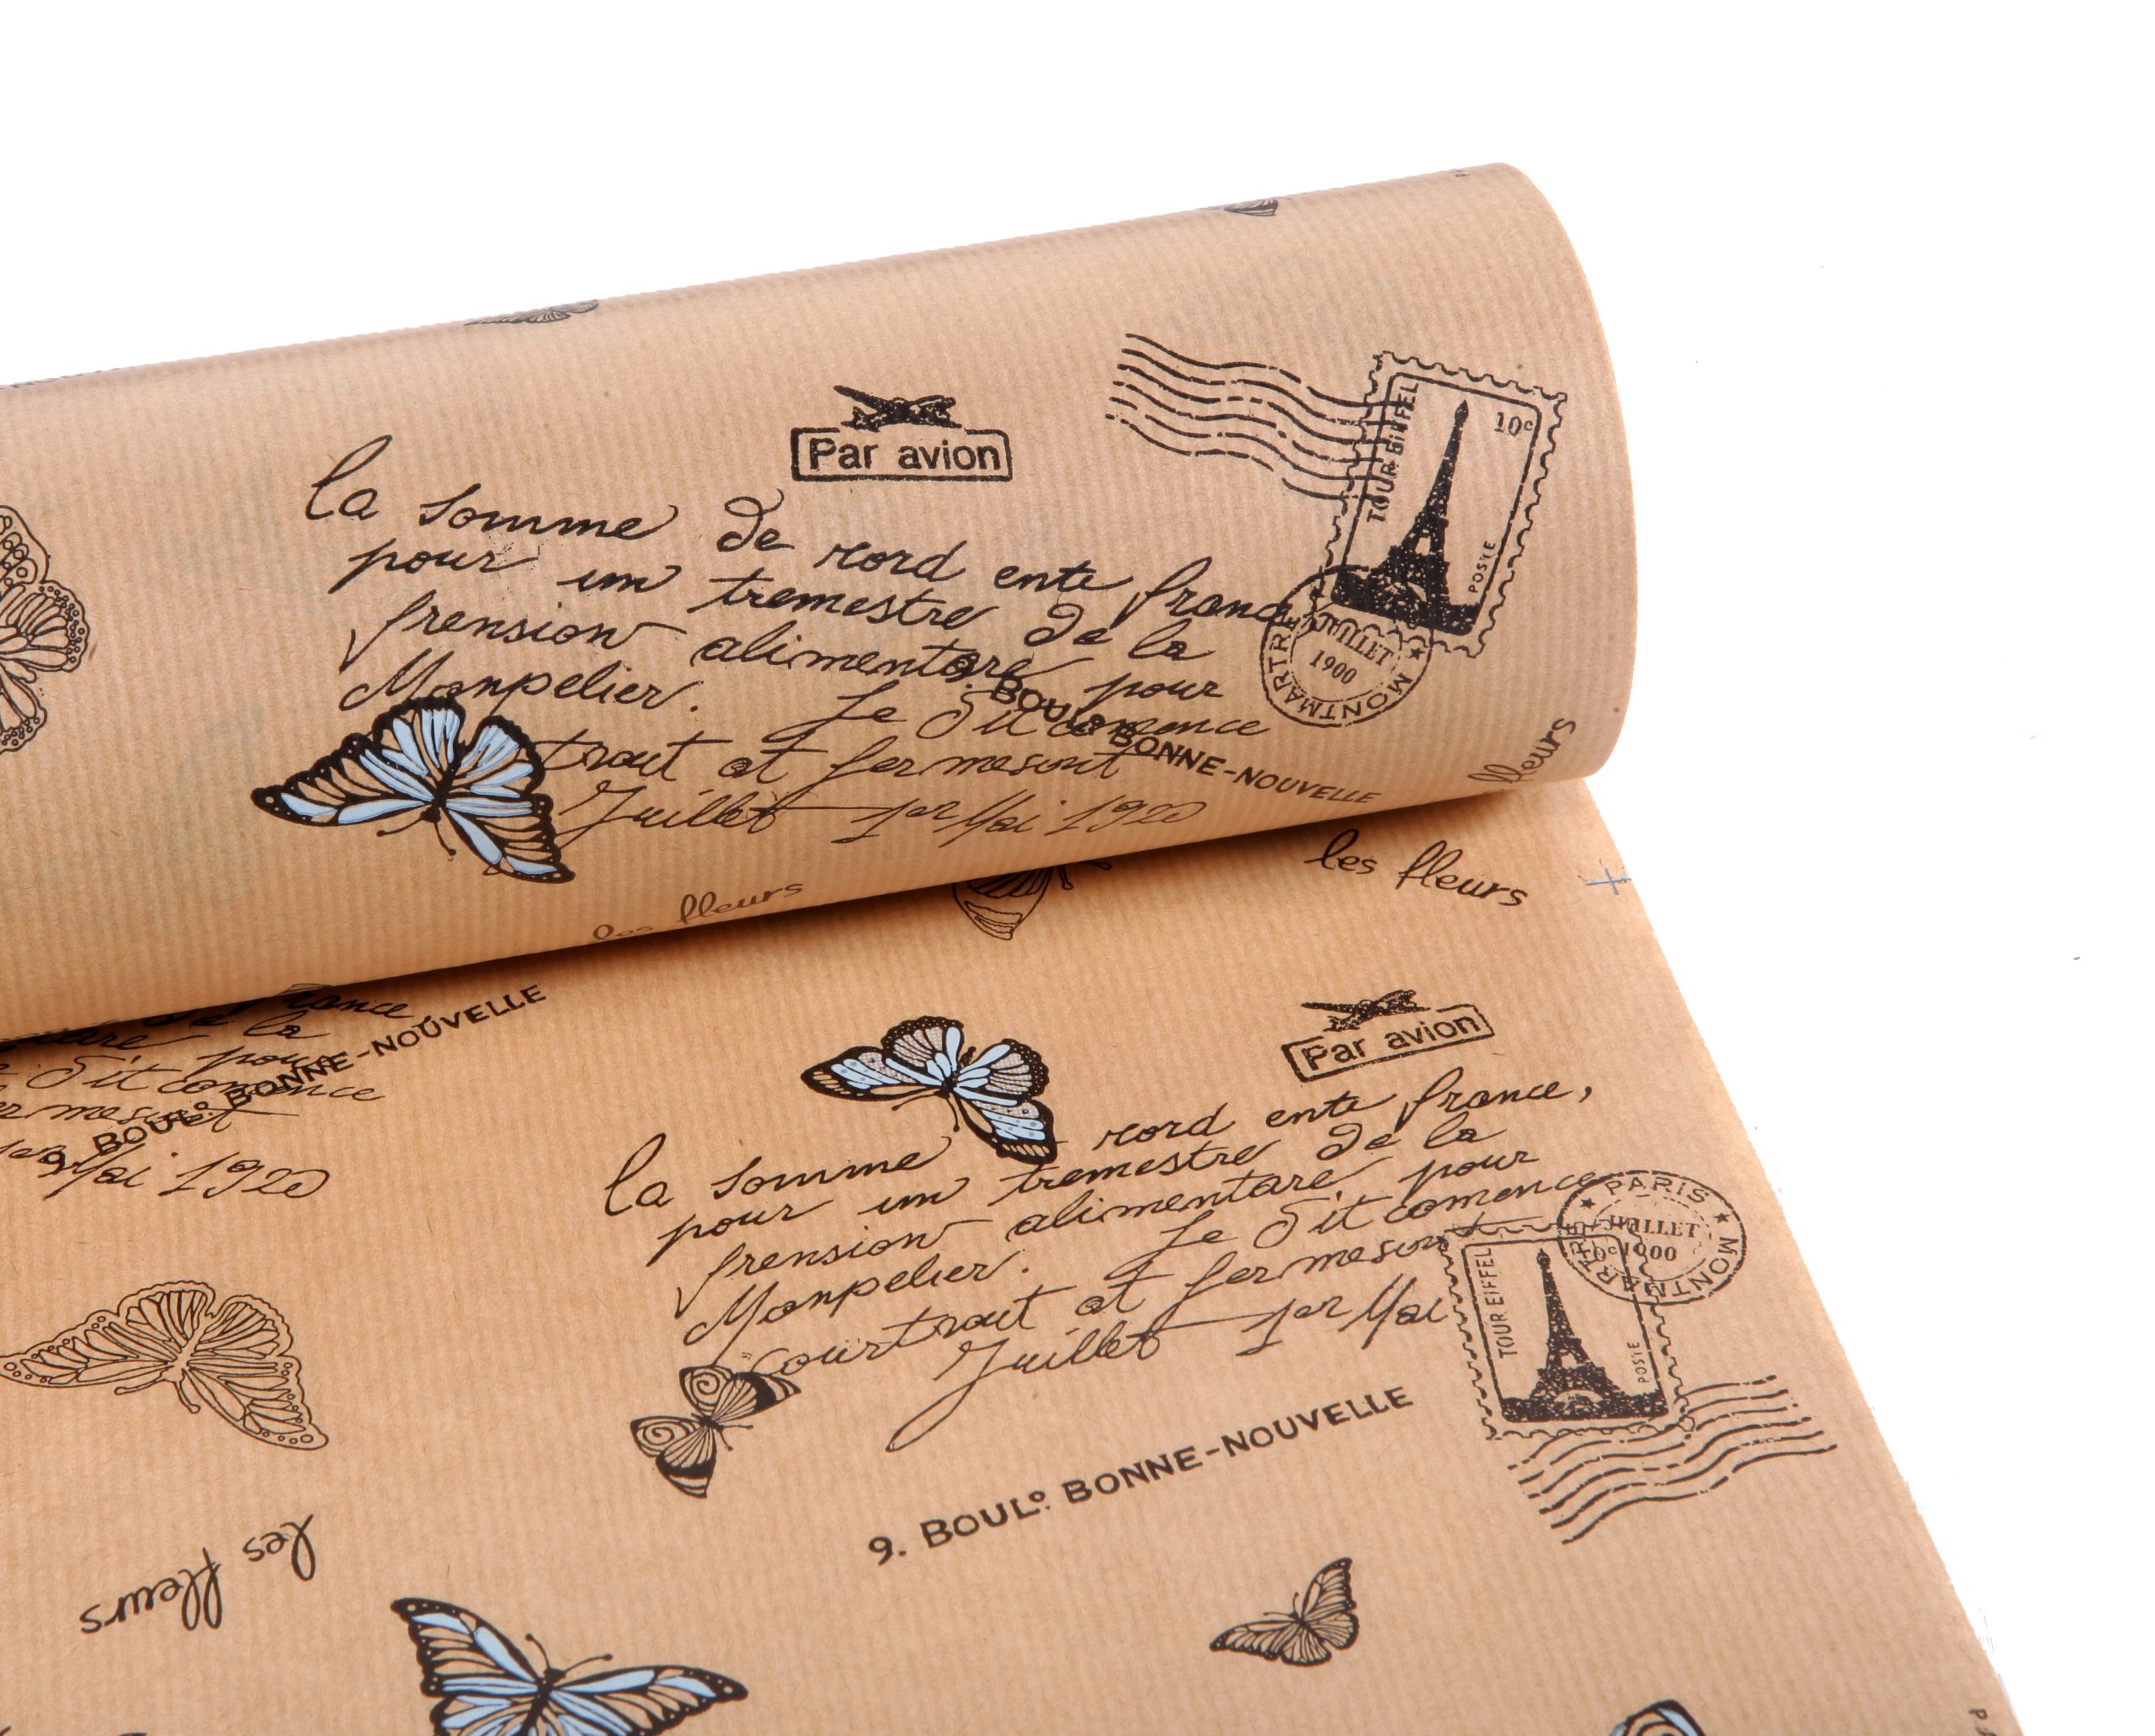 Par avion
TOUR EIFFEL
10c
POSTE
la somme de rord ente france
pour un tremestre de la
frension alimentare pour
Monpelier. Je dit comence
trait at fermesint
Juillet 1er Mai 1920
JUILLET
1900
MONTMARTRE
BOULO. BONNE-NOUVELLE
fleurs
les fleurs
les fleurs
france
de la
pour
dit comence
1er Mai 1920
9. BOULO. BONNE-NOUVELLE
Par avion
la somme rord ente france,
pour un tremestre de la
frension alimentare, pour
Monpelier. Je dit comence
courtrait at fermesint
Juillet 1er Mai
PARIS
JUILLET
1900
MONTMARTRE
TOUR EIFFEL
POSTE
9. BOULO. BONNE-NOUVELLE
les fleurs